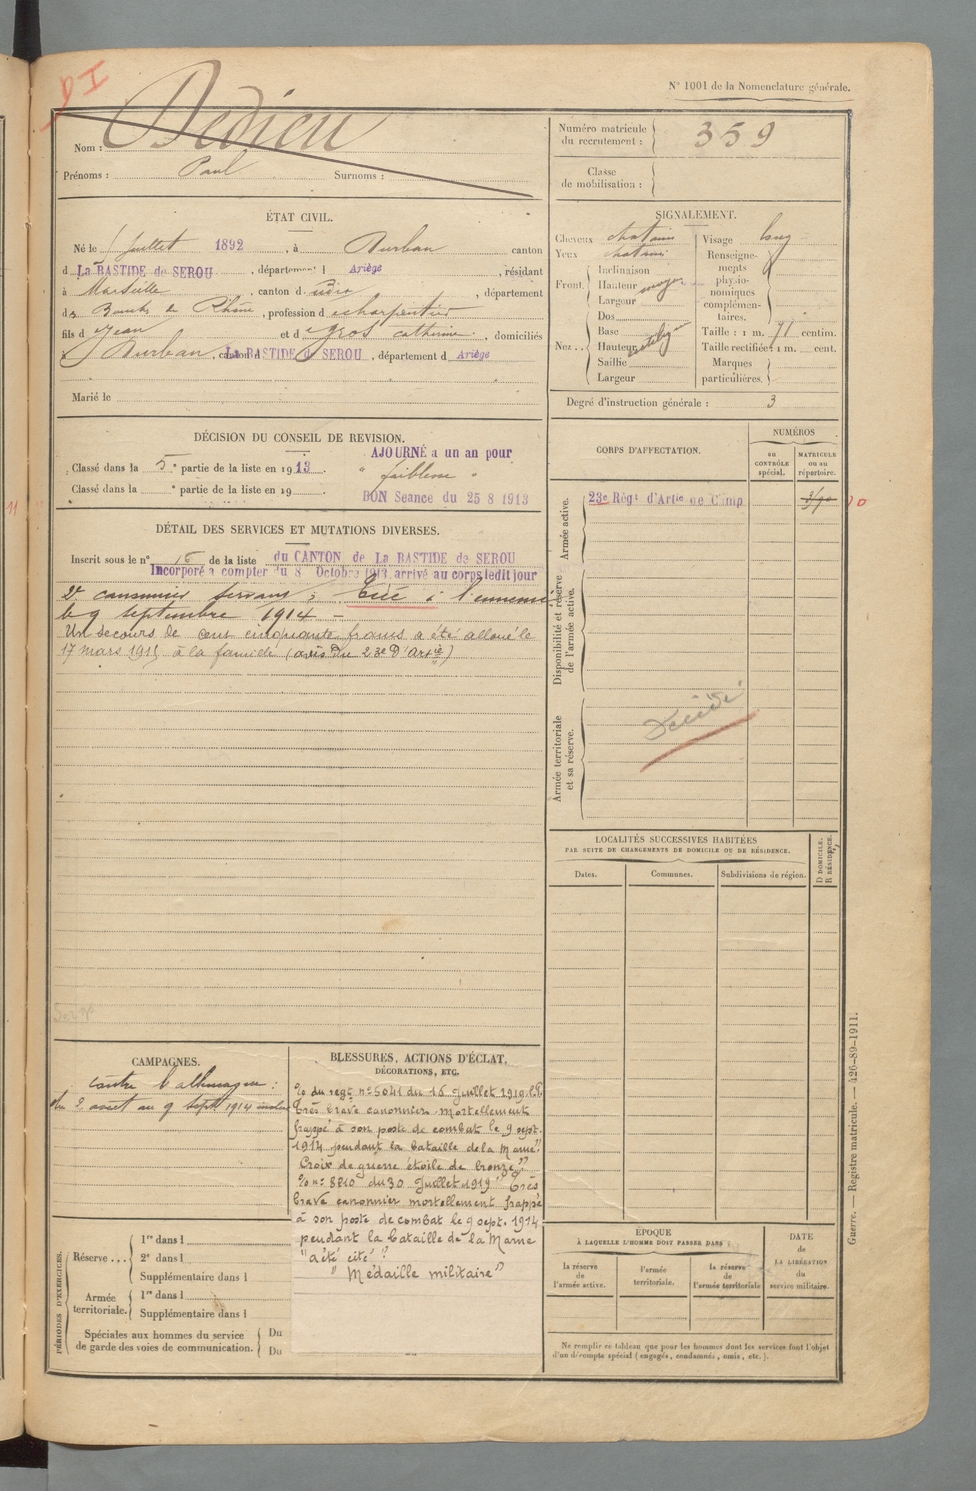 DI
N° 1001 de la Nomenclature générale.
Nom : Dedieu
Prénoms : Paul Surnoms :
Numéro matricule du recrutement : 359
Classe de mobilisation :
ÉTAT CIVIL.
Né le Juillet 1892, à Durban canton
d La BASTIDE de SEROU, département d Ariège, résidant
à Marseille, canton d, département
des Bouches du Rhône, profession de charpentier
fils de Jean et de Gros catherine, domiciliés
à Durban, canton d La BASTIDE de SEROU, département d Ariège
Marié le
SIGNALEMENT.
Cheveux chatains
Yeux chatains
Front.
Inclinaison
Hauteur moyen
Largeur
Nez..
Dos
Base
Hauteur
Saillie
Largeur
Visage long
Renseignements physionomiques complémentaires.
Taille : 1 m. 71 centim.
Taille rectifiée : 1 m. cent.
Marques particulières.
Degré d'instruction générale : 3
DÉCISION DU CONSEIL DE REVISION.
Classé dans la 5e partie de la liste en 1913.
Classé dans la e partie de la liste en 19
AJOURNÉ a un an pour
" faiblesse "
BON Seance du 25 8 1913
DÉTAIL DES SERVICES ET MUTATIONS DIVERSES.
Inscrit sous le n° 16 de la liste du CANTON de La BASTIDE de SEROU
Incorporé à compter du 8 Octobre 1913, arrivé au corps ledit jour
2e canonnier servant ; Tué à l'ennemi
le 9 septembre 1914.
Un secours de cent cinquante francs a été alloué le
17 mars 1915 à la famille (avis du 23e d'Artie)
CORPS D'AFFECTATION.
NUMÉROS
au CONTRÔLE spécial.
MATRICULE ou au répertoire.
Armée active.
23e Régt d'Artie de Camp
Disponibilité et réserve de l'armée active.
Armée territoriale et sa réserve.
Décédé
LOCALITÉS SUCCESSIVES HABITÉES
PAR SUITE DE CHANGEMENTS DE DOMICILE OU DE RÉSIDENCE.
Dates.
Communes.
Subdivisions de région.
D DOMICILE.
R RÉSIDENCE.
CAMPAGNES.
contre l'allemagne :
du 2 aout au 9 sept 1914 inclus
BLESSURES, ACTIONS D'ÉCLAT,
DÉCORATIONS, ETC.
% du regt n° 5041 du 16 Juillet 1919
Très brave canonnier mortellement
frappé à son poste de combat le 9 sept.
1914 pendant la bataille de la Marne"
Croix de guerre étoile de bronze"
% n° 8810 du 30 Juillet 1919 "Très
brave canonnier mortellement frappé
à son poste de combat le 9 sept. 1914
pendant la bataille de la Marne
"a été cité"
"Médaille militaire"
PÉRIODES D'EXERCICES.
Réserve...
1re dans l
2e dans l
Supplémentaire dans l
Armée territoriale.
1re dans l
Supplémentaire dans l
Spéciales aux hommes du service
de garde des voies de communication.
Du
Du
ÉPOQUE
À LAQUELLE L'HOMME DOIT PASSER DANS :
la réserve de l'armée active.
l'armée territoriale.
la réserve de l'armée territoriale
DATE DE LA LIBÉRATION du service militaire.
Ne remplir ce tableau que pour les hommes dont les services font l'objet
d'un décompte spécial (engagés, condamnés, omis, etc.).
Guerre. — Registre matricule. — 426-89-1911.